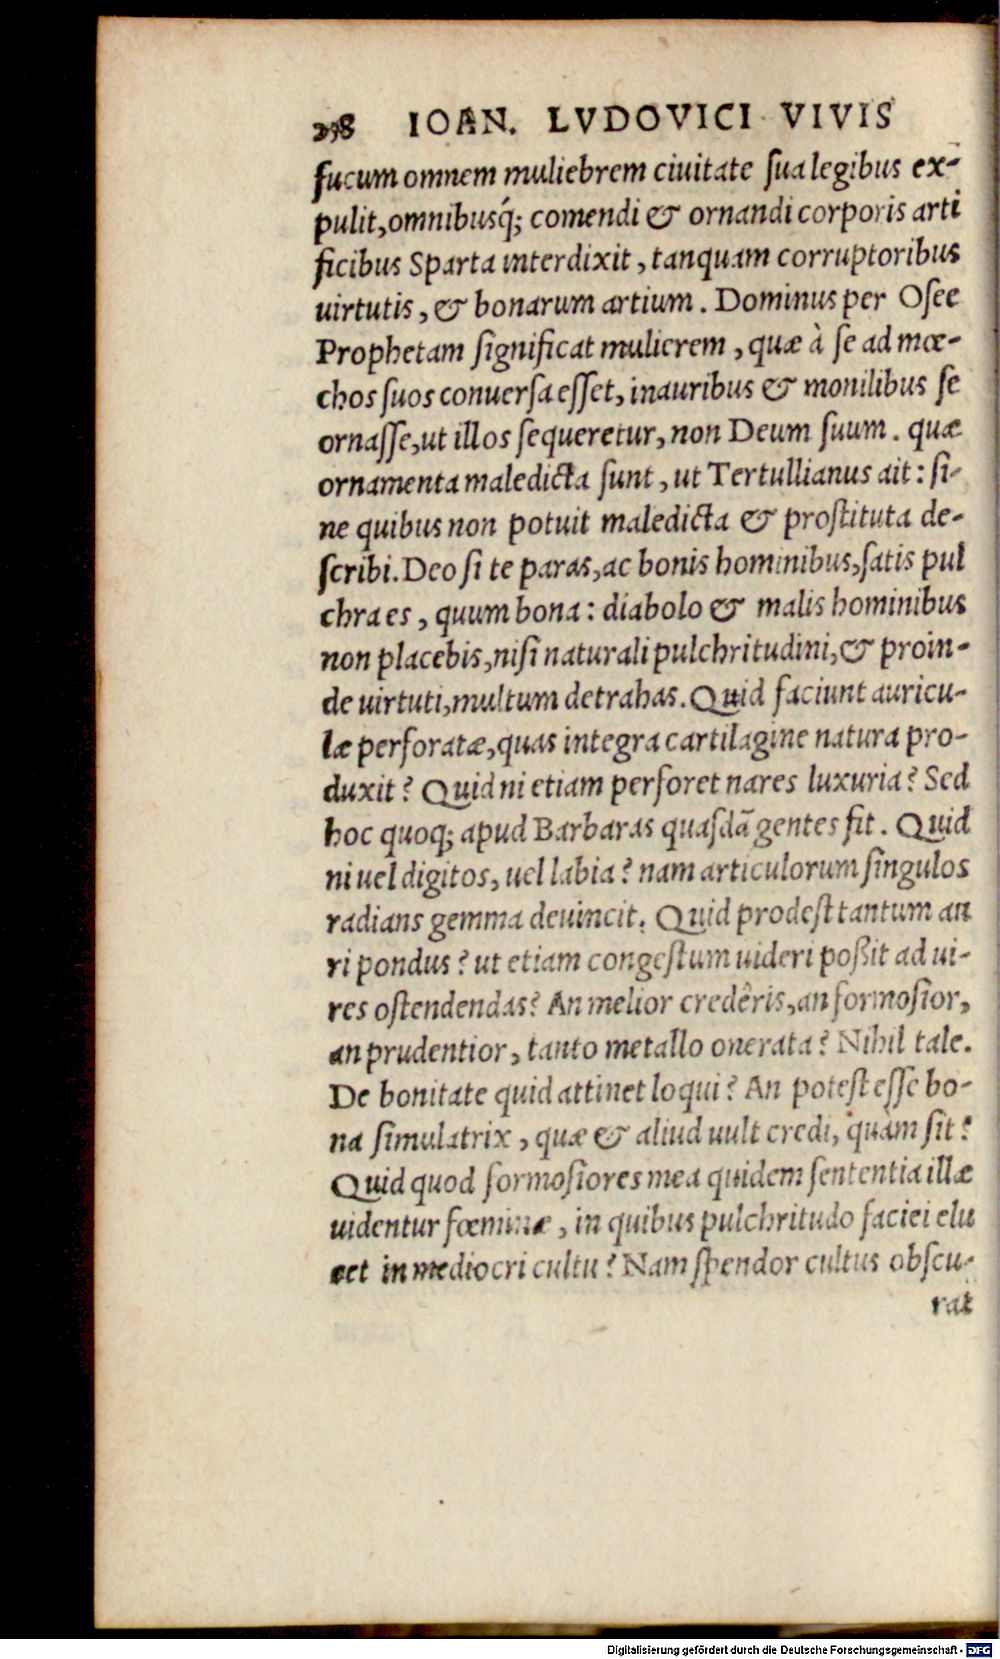 238 IOAN. LVDOVICI VIVIS
fucum omnem muliebrem ciuitate sua legibus ex-
pulit, omnibusq́; comendi & ornandi corporis arti
ficibus Sparta interdixit, tanquam corruptoribus
uirtutis, & bonarum artium. Dominus per Osee
Prophetam significat mulierem, quæ à se ad mœ-
chos suos conuersa esset, inauribus & monilibus se
ornasse, ut illos sequeretur, non Deum suum. quæ
ornamenta maledicta sunt, ut Tertullianus ait: si-
ne quibus non potuit maledicta & prostituta de-
scribi. Deo si te paras, ac bonis hominibus, satis pul
chra es, quum bona: diabolo & malis hominibus
non placebis, nisi naturali pulchritudini, & proin-
de uirtuti, multum detrahas. Quid faciunt auricu-
læ perforatæ, quas integra cartilagine natura pro-
duxit? Quid ni etiam perforet nares luxuria? Sed
hoc quoq; apud Barbaras quasdã gentes fit. Quid
ni uel digitos, uel labia? nam articulorum singulos
radians gemma deuincit. Quid prodest tantum au
ri pondus? ut etiam congestum uideri poßit ad ui-
res ostendendas? An melior credêris, an formosior,
an prudentior, tanto metallo onerata? Nihil tale.
De bonitate quid attinet loqui? An potest esse bo-
na simulatrix, quæ & aliud uult credi, quàm sit?
Quid quod formosiores mea quidem sententia illæ
uidentur fœminæ, in quibus pulchritudo faciei elu
cet in mediocri cultu? Nam spendor cultus obscu-
rat
Digitalisierung gefördert durch die Deutsche Forschungsgemeinschaft - DFG